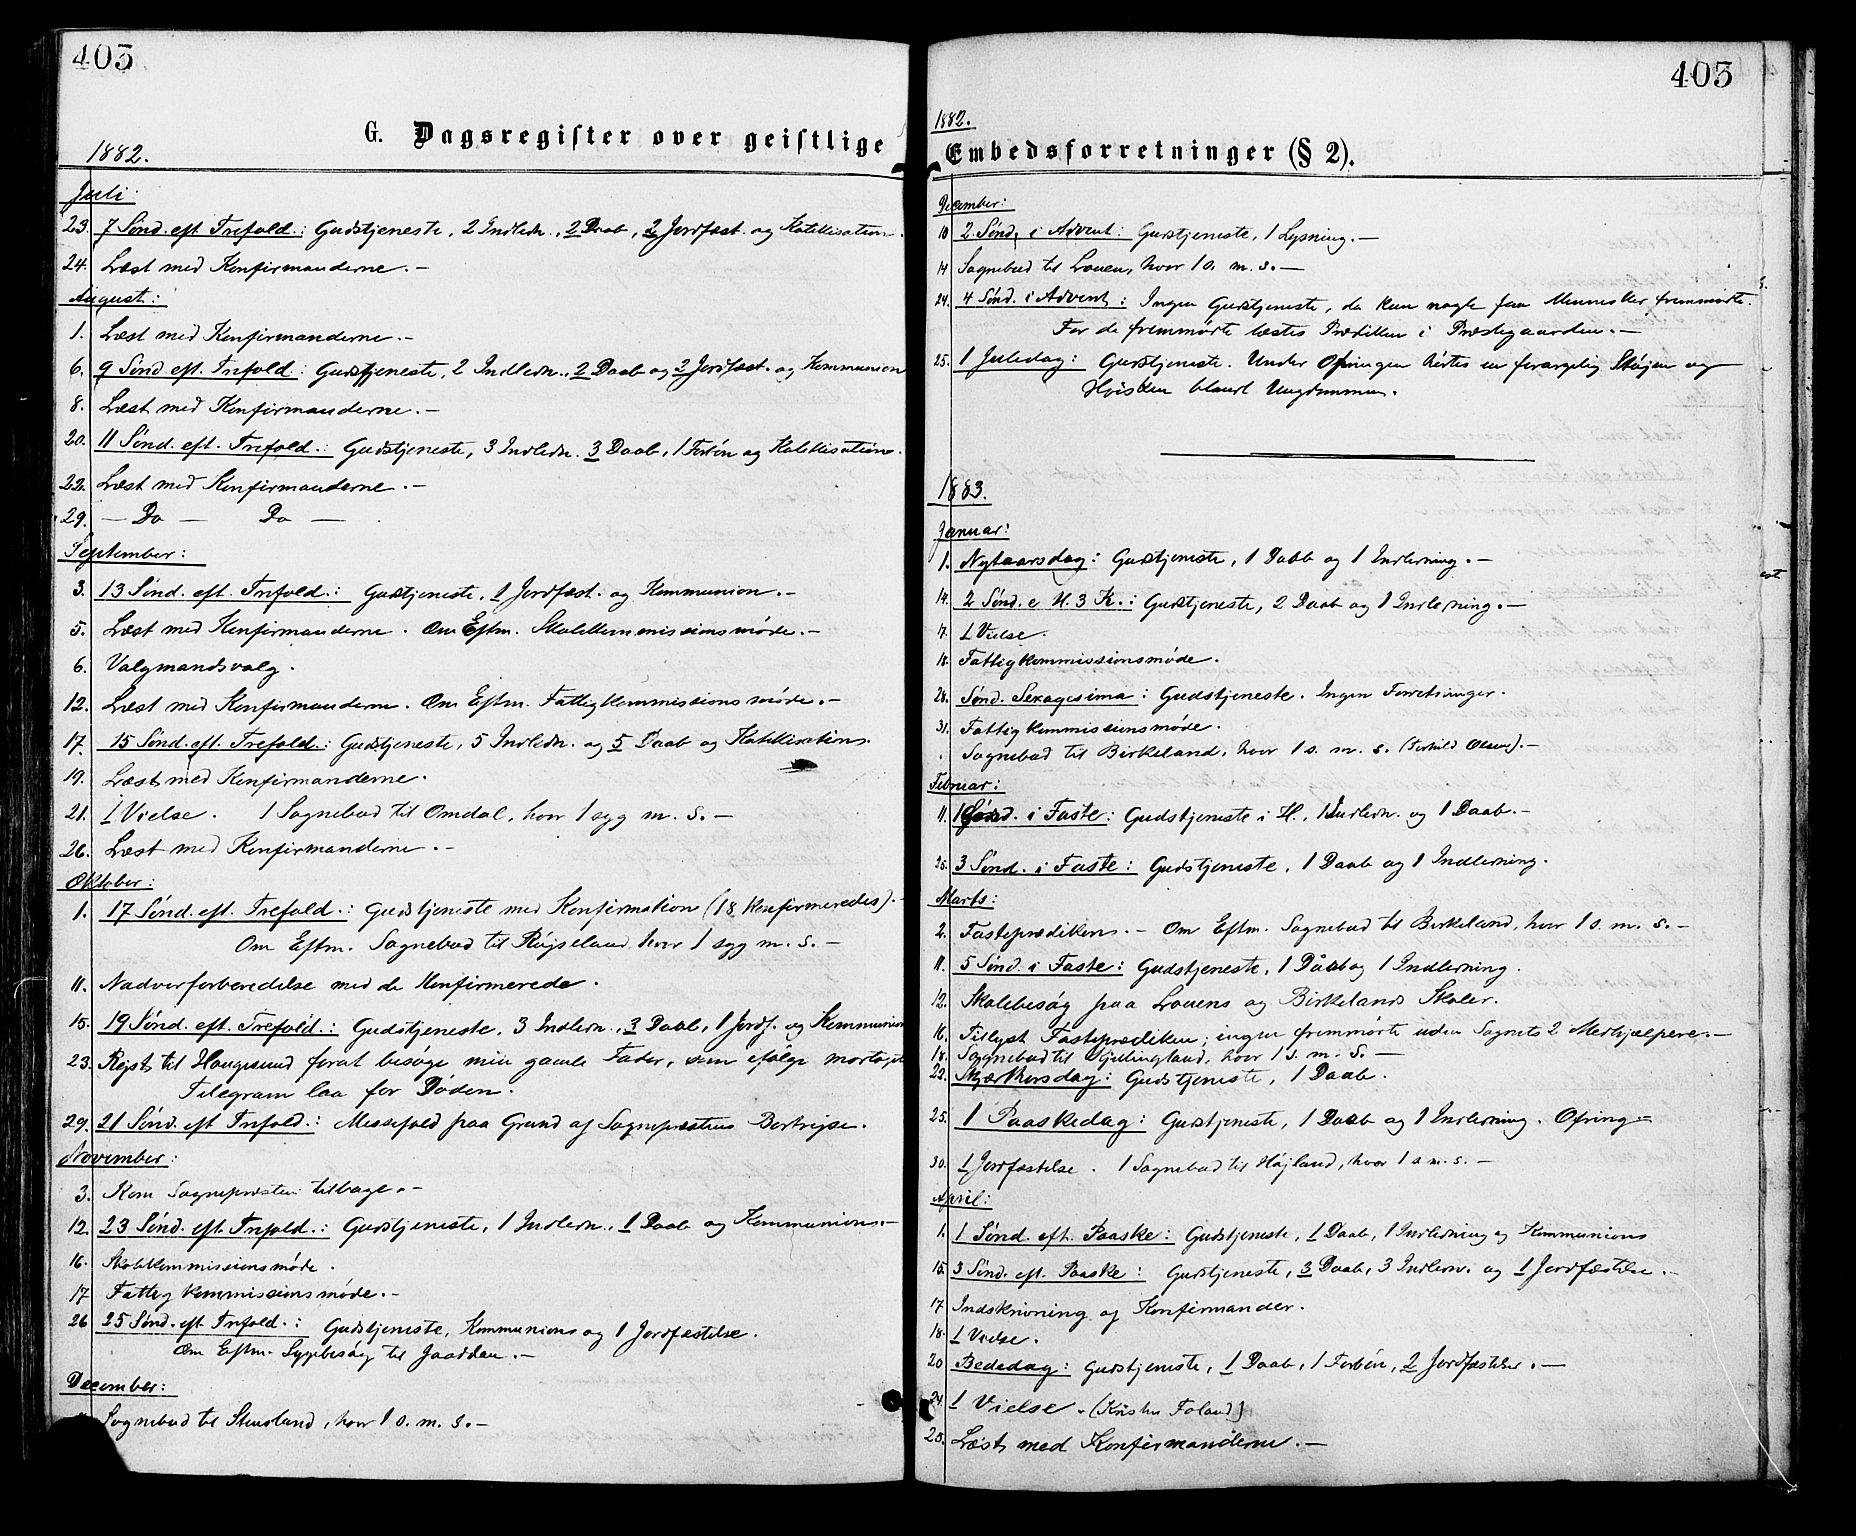 403
G. Dagsregister over geistlige
1882.
Juli:
23. 7 Sønd. eft. Trefold.: Gudstjeneste, 2 Indledn., 2 Daab, 2 Jordfæst. og Katekisation.
24. Læst med Konfirmanderne. —
August:
1. Læst med Konfirmanderne. —
6. 9 Sønd eft. Trefold: Gudstjeneste, 2 Indledn., 2 Daab og 2 Jordfæst. og Kommunion
8. Læst med Konfirmanderne. —
20. 11 Sønd. eft. Trefold.: Gudstjeneste, 3 Indledn. 3 Daab, 1 Forbøn og Katekisation.
22. Læst med Konfirmanderne. —
29. — Do — Do —
September:
3. 13 Sønd. eft. Trefold.: Gudstjeneste, 1 Jordfæst. og Kommunion. —
5. Læst med Konfirmanderne. Om Eftm. Skolekommissionsmøde. —
6. Valgmandsvalg.
12. Læst med Konfirmanderne. Om Eftm. Fattigkommissionsmøde. —
17. 15 Sønd. eft. Trefold.: Gudstjeneste, 5 Indledn. og 5 Daab og Katekisation.
19. Læst med Konfirmanderne.
21. 1 Vielse. 1 Sognebud til Omdal, hvor 1 syg m. s. —
26. Læst med Konfirmanderne. —
Oktober:
1. 17 Sønd. eft. Trefold.: Gudstjeneste med Konfirmation (18 Konfirmeredes). —
Om Eftm. Sognebud til Røjseland, hvor 1 syg m. s. —
11. Nadverforberedelse med de Konfirmerede.
15. 19 Sønd. eft. Trefold.: Gudstjeneste, 3 Indledn., 3 Daab, 1 Jordf. og Kommunion
23. Rejst til Haugesund forat besøge min gamle Fader, som ifølge modtaget
Telegram laa for Døden.
29. 21 Sønd. eft Trefold.: Messefald paa Grund af Sognepræstens Bortrejse.
November:
3. Kom Sognepræsten tilbage. —
12. 23 Sønd. eft. Trefold.: Gudstjeneste, 1 Indledn., 1 Daab og Kommunion. —
16. Skolekommissionsmøde.
17 Fattigkommissionsmøde. —
26 25 Sønd. eft Trefold.: Gudstjeneste, Kommunion og 1 Jordfæstelse.
Om Eftm. Sygebesøg til Jaardan. —
December:
Sognebud til Stensland, hvor 1 s. m. s. —
403
1882.
Embedsforretninger (§ 2).
December:
10 2. Sønd. i Advent: Gudstjeneste, 1 Lysning. —
14 Sognebud til Louen, hvor 1 s. m. s. —
24. 4 Sønd. i Advent: Ingen Gudstjeneste, da kun nogle faa Mennesker fremmødte.
For de fremmødte læstes Prædiken i Præstegaarden. —
25. 1 Juledag: Gudstjeneste. Under Ofringen hørtes en forargelig Støjen og
Hvisken blandt Ungdommen.
1883.
Januar:
1. Nytaarsdag: Gudstjeneste, 1 Daab og 1 Indledning. —
14. 2 Sønd. e H. 3 K.: Gudstjeneste, 2 Daab og 1 Indledning. —
17. 1 Vielse.
18. Fattigkommissionsmøde.
28. Sønd. Sexagesima: Gudstjeneste. Ingen Forretninger.
31. Fattigkommissionsmøde.
Sognebud til Birkeland, hvor 1 s. m. s. (Torkild Olsen). —
Februar:
11. 1 Sønd. i Faste: Gudstjeneste i H., 1 Indledn. og 1 Daab. —
25. 3 Sønd. i Faste: Gudstjeneste, 1 Daab og 1 Indledning.
Marts:
2. Fasteprædiken. — Om Eftm. Sognebud til Birkeland, hvor 1 s. m. s. —
11. 5 Sønd. i Faste: Gudstjeneste, 1 Daab og 1 Indledning.
12. Skolebesøg paa Louens og Birkelands Skoler.
16. Tillyst Fasteprædiken; ingen fremmødte uden Sognets 2 Medhjælpere. —
18. Sognebud til Kjelingland, hvor 1 s. m. s. —
22. Skjærthorsdag: Gudstjeneste, 1 Daab.
25. 1 Paaskedag: Gudstjeneste, 1 Daab og 1 Indledning. Ofring —
30. 1 Jordfæstelse. 1 Sognebud til Højland, hvor 1 s m. s. —
April:
1. 1 Sønd. eft. Paaske: Gudstjeneste, 1 Daab, 1 Indledning og Kommunion
15. 3 Sønd. eft. Paaske: Gudstjeneste, 3 Daab, 3 Indledn. og 1 Jordfæstelse. —
17 Indskrivning af Konfirmander.
18. 1 Vielse.
20 Bededag: Gudstjeneste, 1 Daab, 1 Forbøn, 2 Jordfæstelser. —
24. 1 Vielse. (Foland)
25. Læst med Konfirmanderne. —